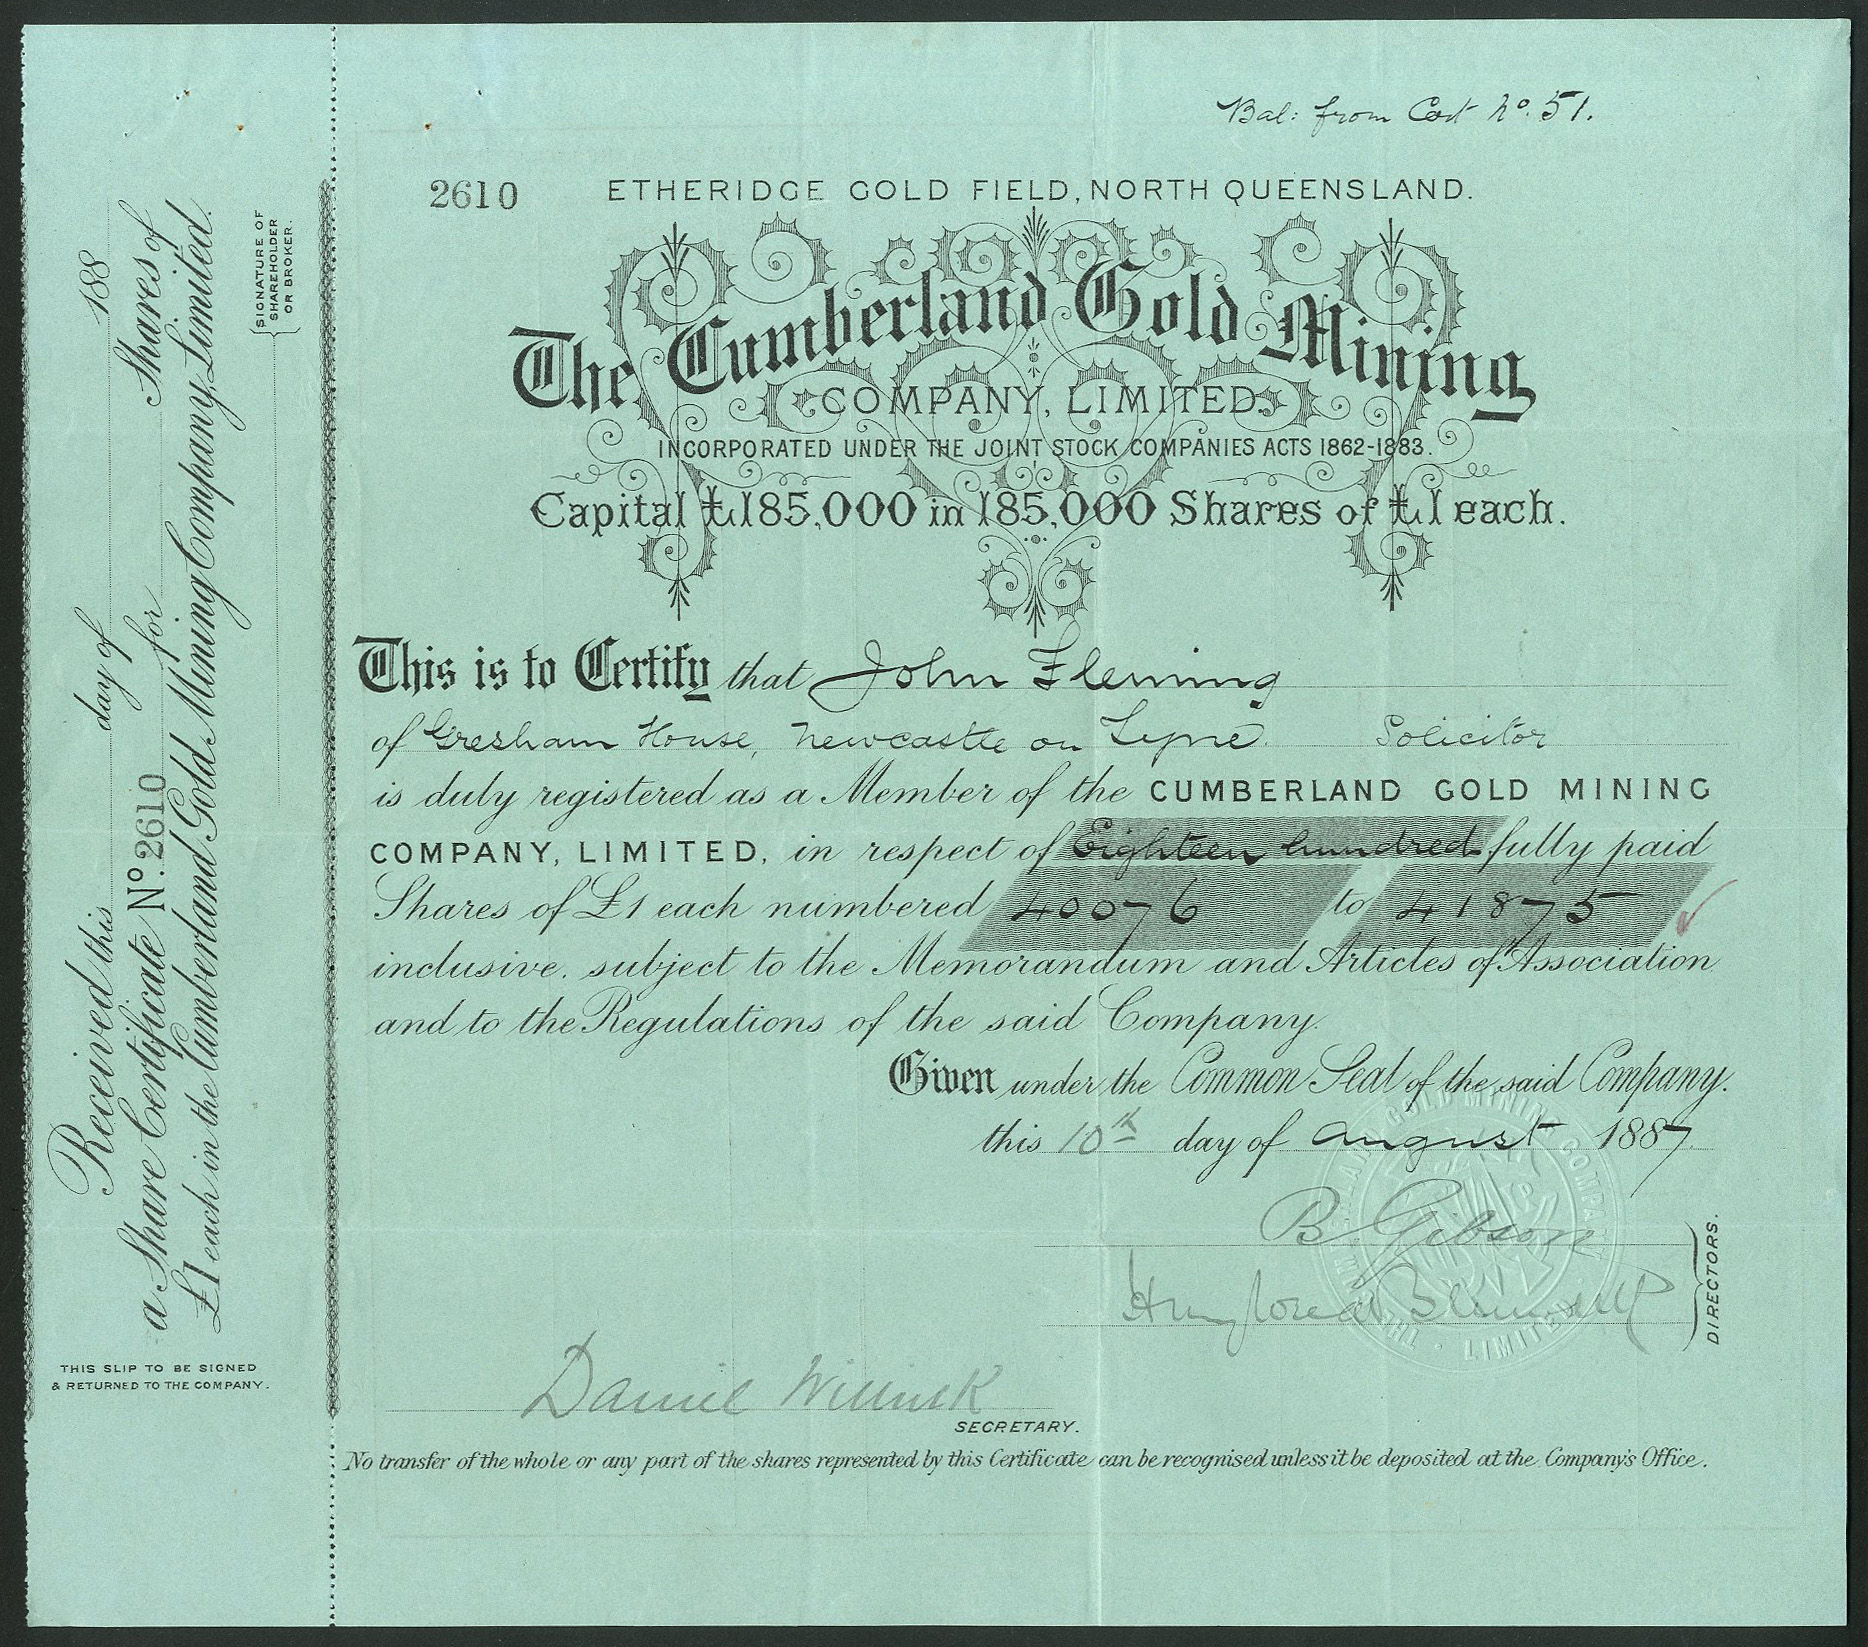 Bal: from Cert No. 51.
2610
ETHERIDGE GOLD FIELD, NORTH QUEENSLAND.
The Cumberland Gold Mining
COMPANY, LIMITED.
INCORPORATED UNDER THE JOINT STOCK COMPANIES ACTS 1862-1883.
Capital £185,000 in 185,000 Shares of £1 each.
This is to Certify that John Fleming
of Gresham House, Newcastle on Tyne. Solicitor
is duly registered as a Member of the CUMBERLAND GOLD MINING
COMPANY, LIMITED, in respect of Eighteen hundred fully paid
Shares of £1 each numbered 40076 to 41875
inclusive, subject to the Memorandum and Articles of Association
and to the Regulations of the said Company.
Given under the Common Seal of the said Company.
this 10th day of August 1887
B. Gibson
DIRECTORS.
Daniel
SECRETARY.
No transfer of the whole or any part of the shares represented by this Certificate can be recognised unless it be deposited at the Company's Office.
THE CUMBERLAND GOLD MINING COMPANY LIMITED
Received this day of 188
a Share Certificate No. 2610 for Shares of
£1 each in the Cumberland Gold Mining Company, Limited.
SIGNATURE OF
SHAREHOLDER
OR BROKER.
THIS SLIP TO BE SIGNED
& RETURNED TO THE COMPANY.